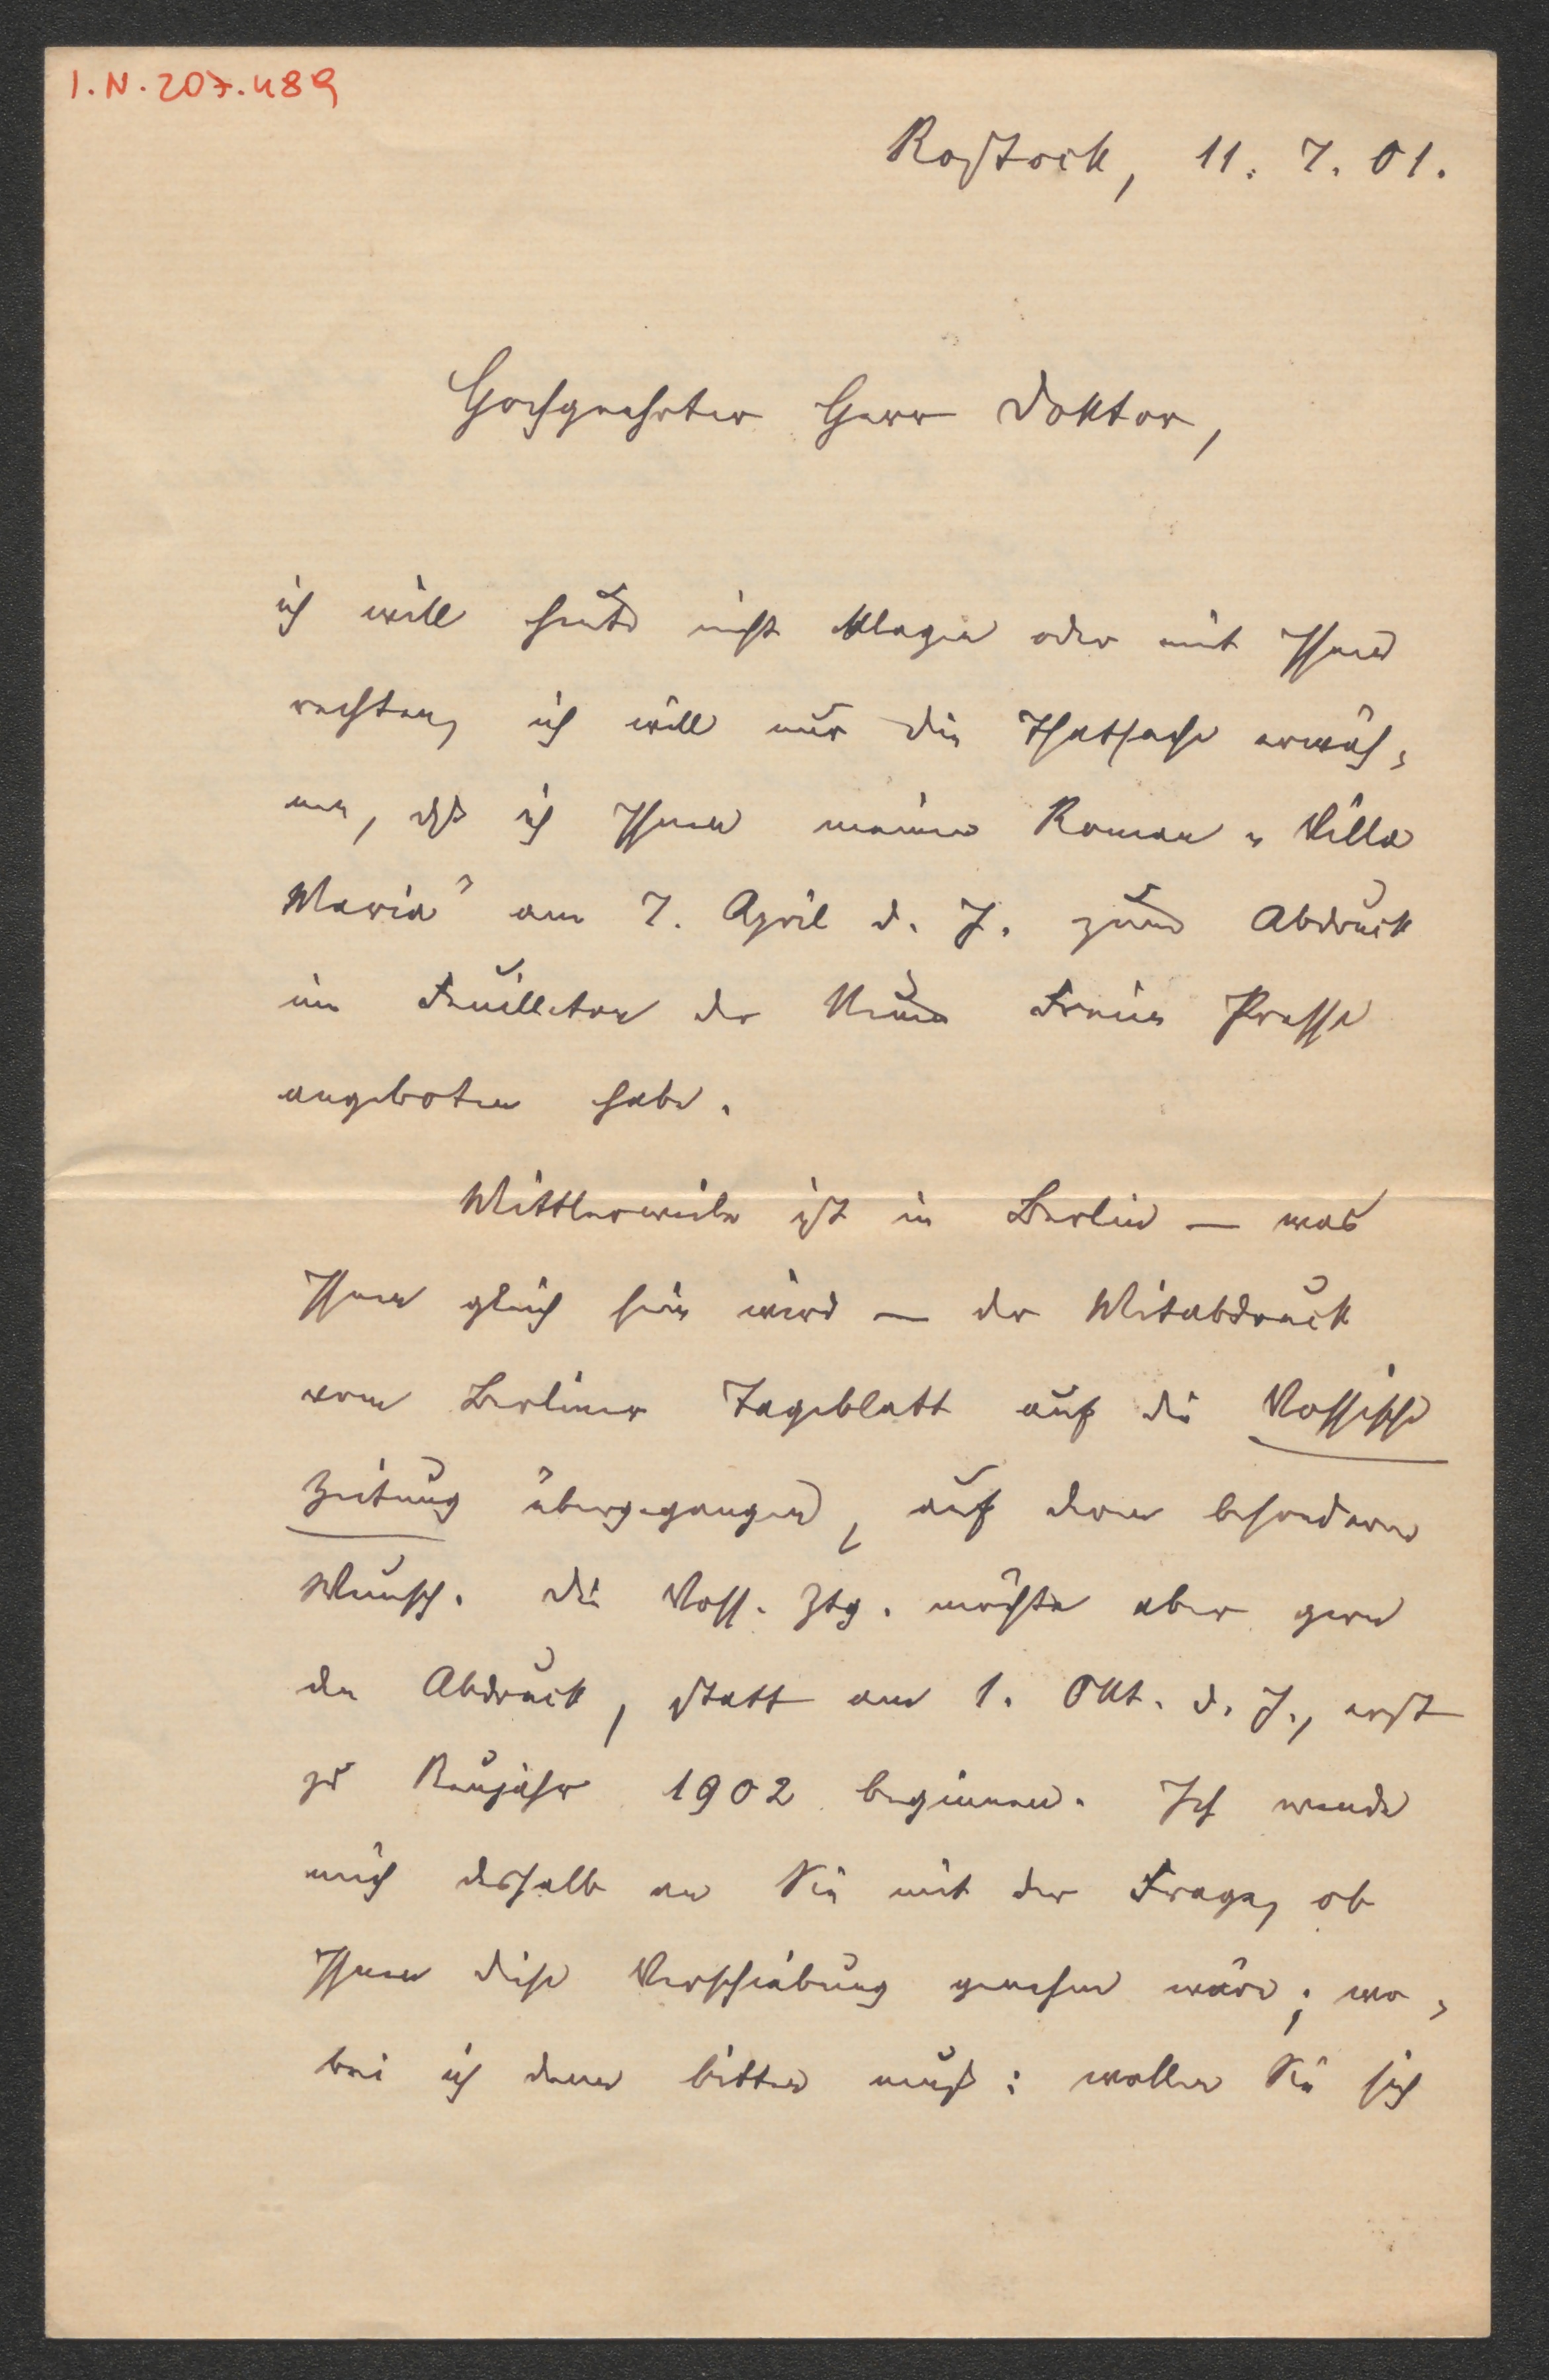 I.N. 207.489
Rostock, 11. 7. 01.
Hochgeehrter Herr Doktor,
ich will heute nicht klagen oder mit Ihnen
rechten, ich will nur die Thatsache erwäh-
nen, daß ich Ihnen meinen Roman „Villa
Maria" am 7. April d. J. zum Abdruck
im Feuilleton der Neuen Freien Presse
angeboten habe.
Mittlerweile ist in Berlin — was
Ihnen gleich sein wird — der Mitabdruck
vom Berliner Tageblatt auf die Vossische
Zeitung übergegangen, auf deren besonderen
Wunsch. Die Voss. Ztg. möchte aber gern
den Abdruck, statt am 1. Okt. d. J., erst
zu Neujahr 1902 beginnen. Ich wende
mich deshalb an Sie mit der Frage, ob
Ihnen diese Verschiebung genehm wäre; wo-
bei ich denn bitten muß: wollen Sie sich